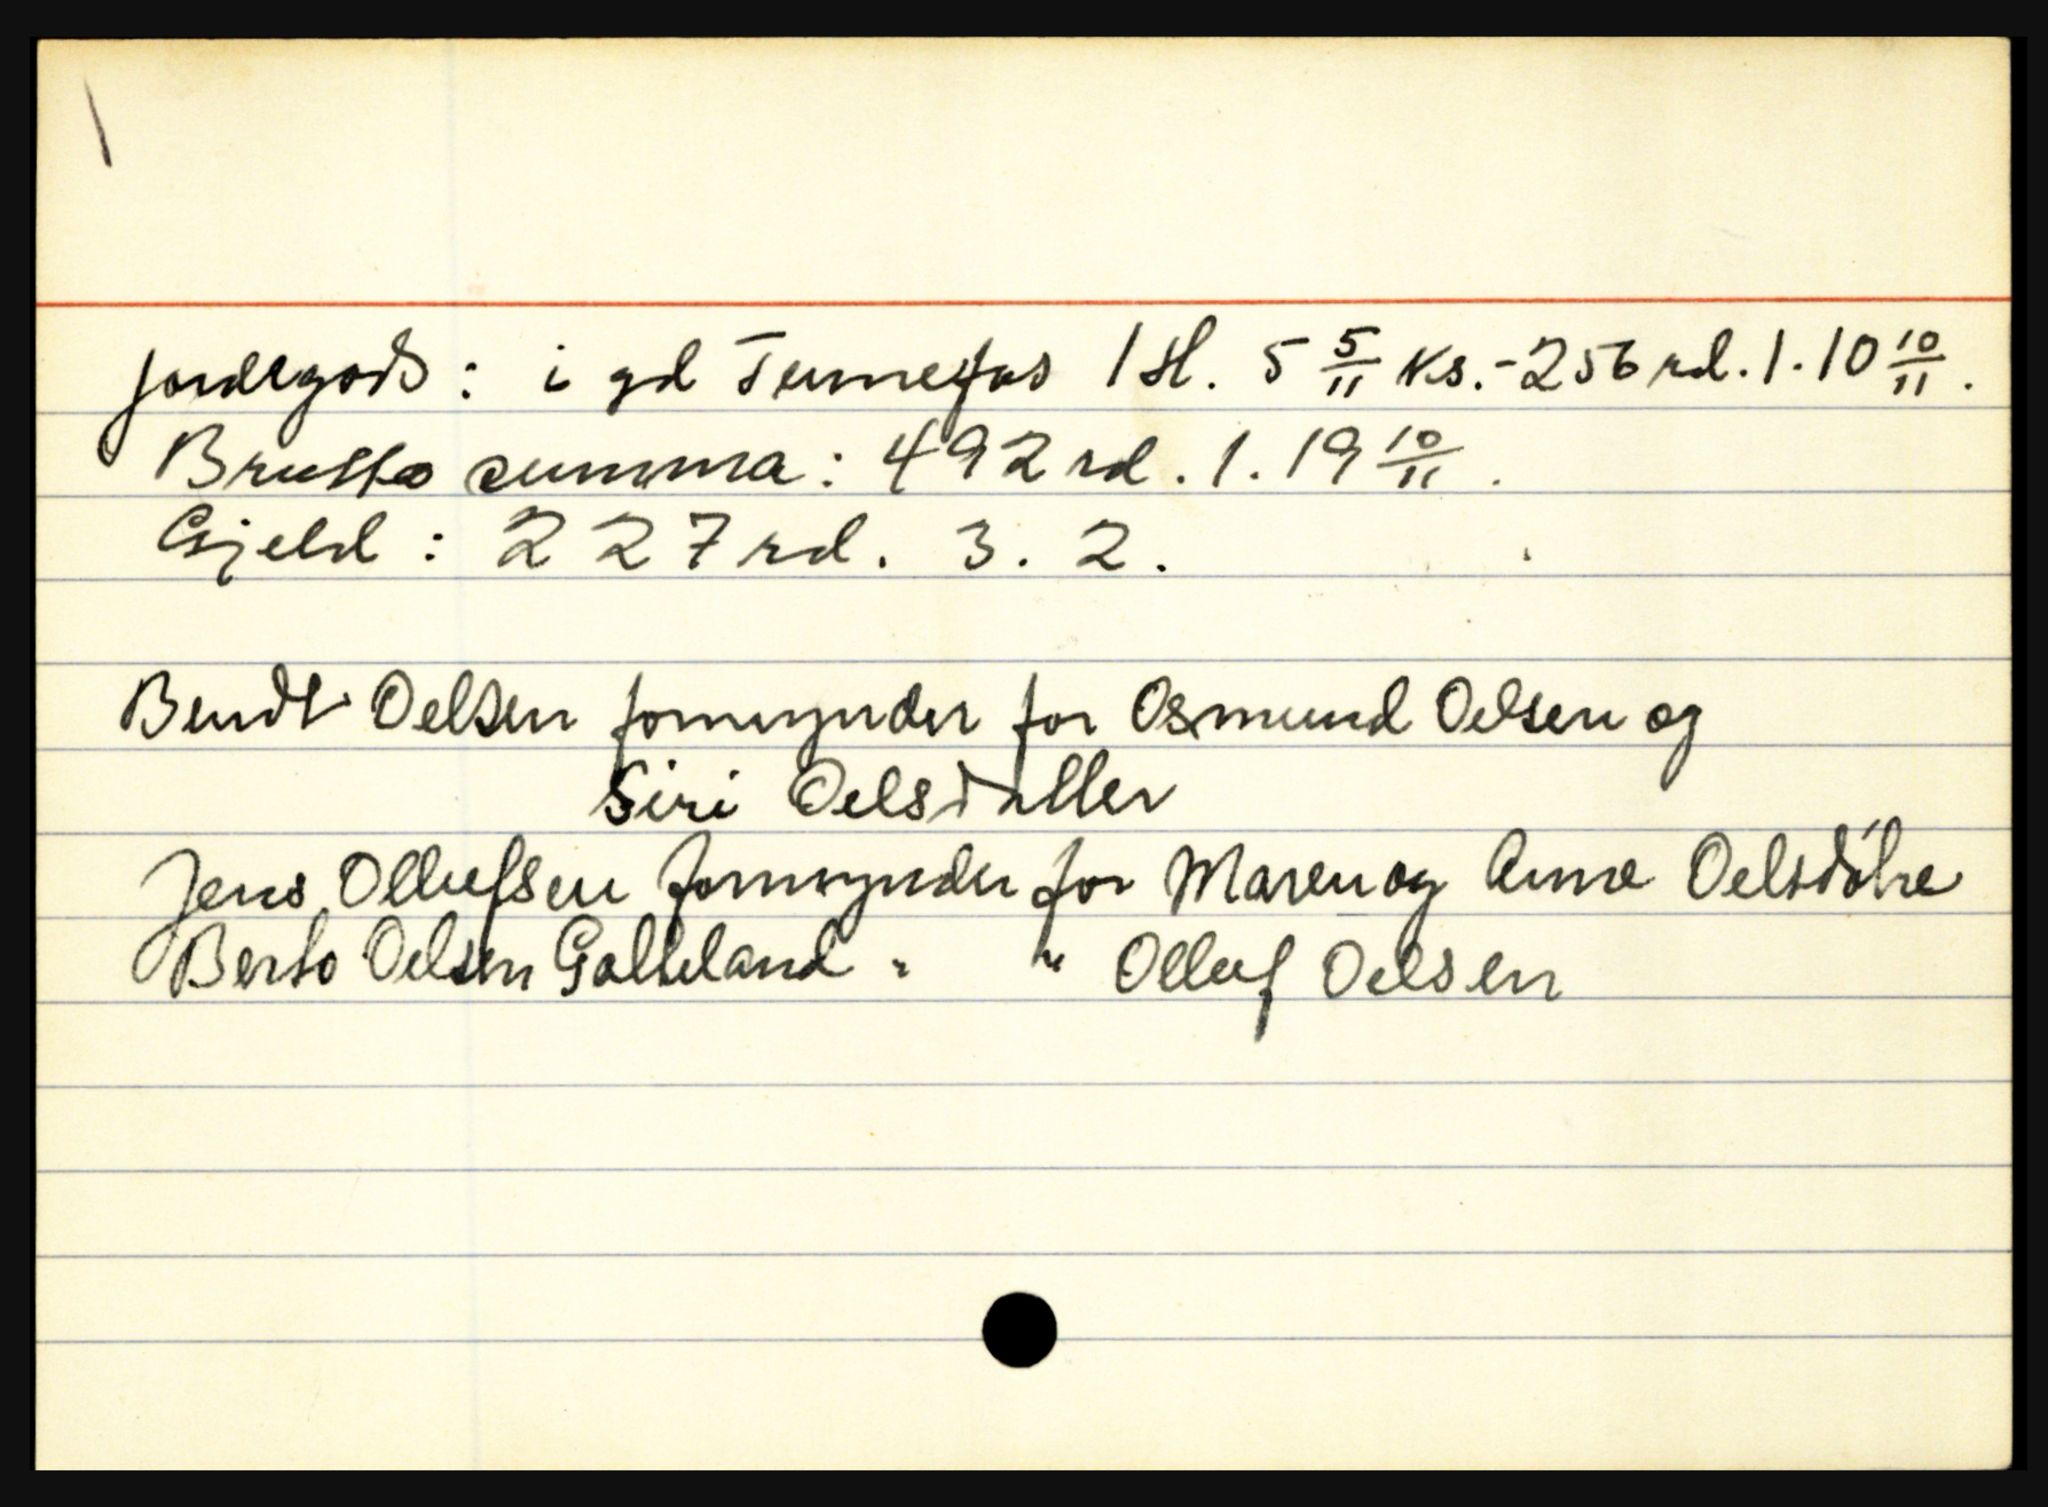 jordegods: i gd Tunnefos 1 sl. 5 5/11 ks.-256 rd. 1. 10 10/11.
Brutto summa: 492 rd. 1. 19 10/11.
Gjeld: 227 rd. 3. 2.
Bendt Oelsen formynder for Osmund Oelsen og
Siri Oelsdatter
Jens Ollufsen formynder for Maren og Anne Oelsdøtre
Berto Oelsen Galteland " " Olluf Oelsen